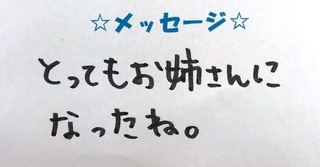 ☆メッセージ☆
とってもお姉さんに
なったね。